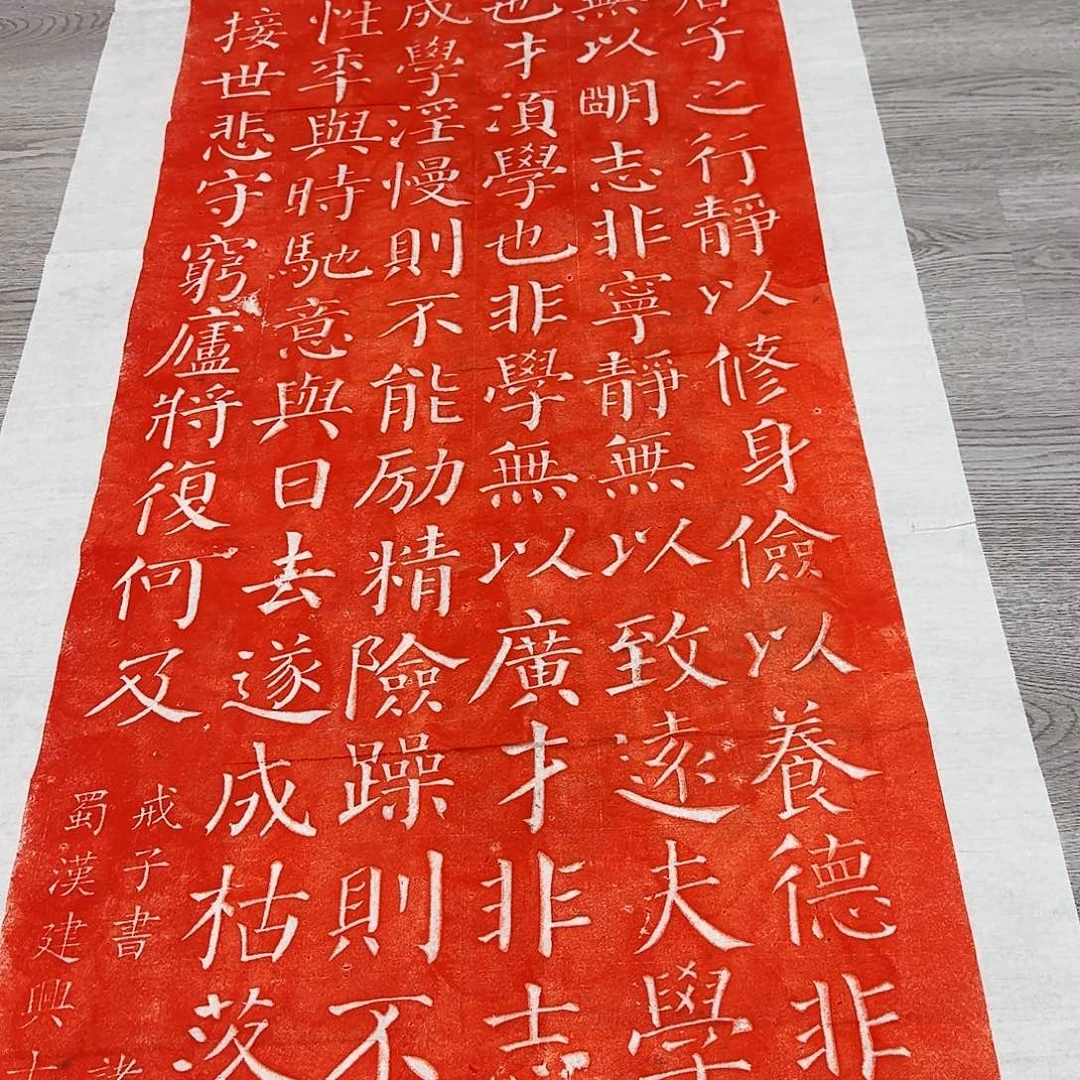 君子之行靜以修身儉以養德非
無以明志非寧靜無以致遠夫學
也才須學也非學無以廣才非志
成學淫慢則不能励精險躁則不
性年與時馳意與日去遂成枯落
接世悲守窮廬將復何及
戒子書 諸
蜀漢建興十